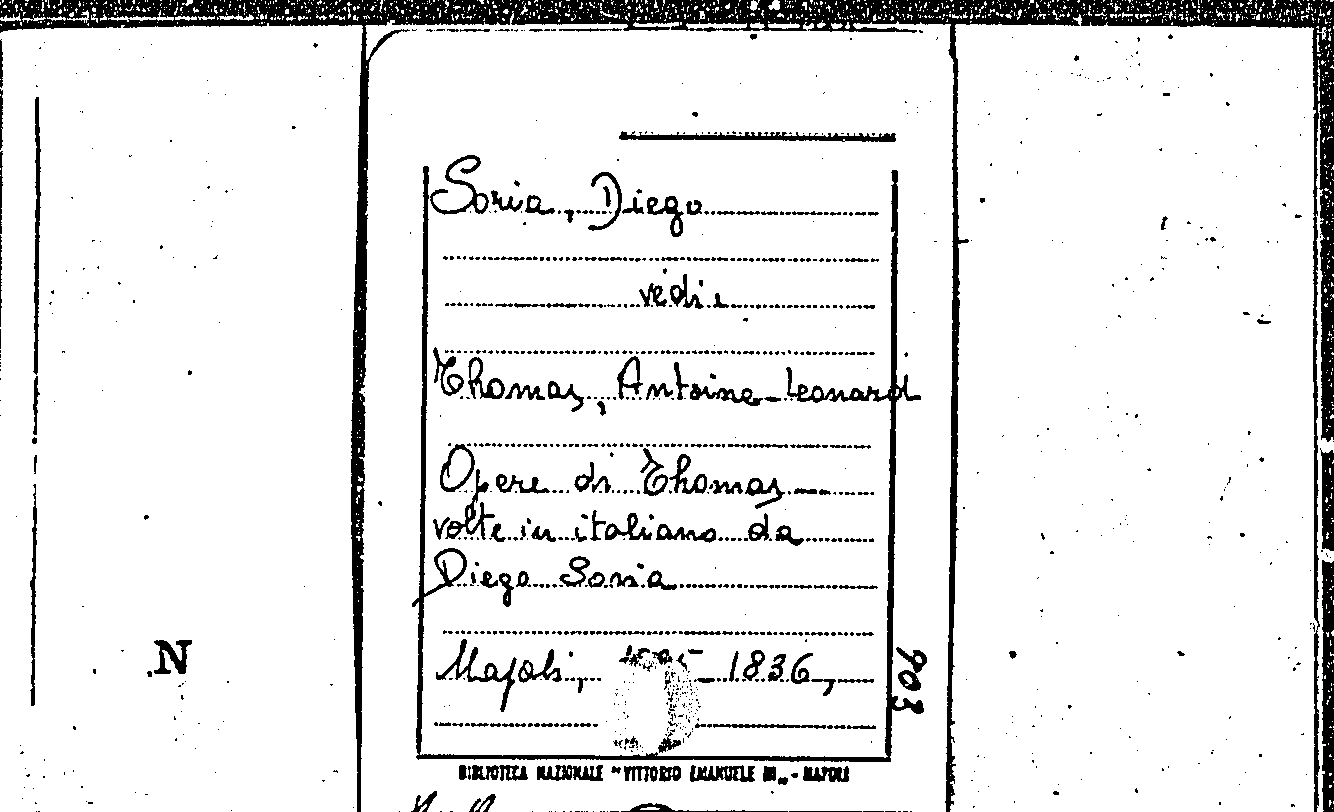 Soria, Diego
vedi:
Thomas, Antoine-Leonard
Opere di Thomas —
volte in italiano da
Diego Soria
Napoli, - 1836,
903
N
BIBLIOTECA NAZIONALE "VITTORIO EMANUELE III„ - NAPOLI